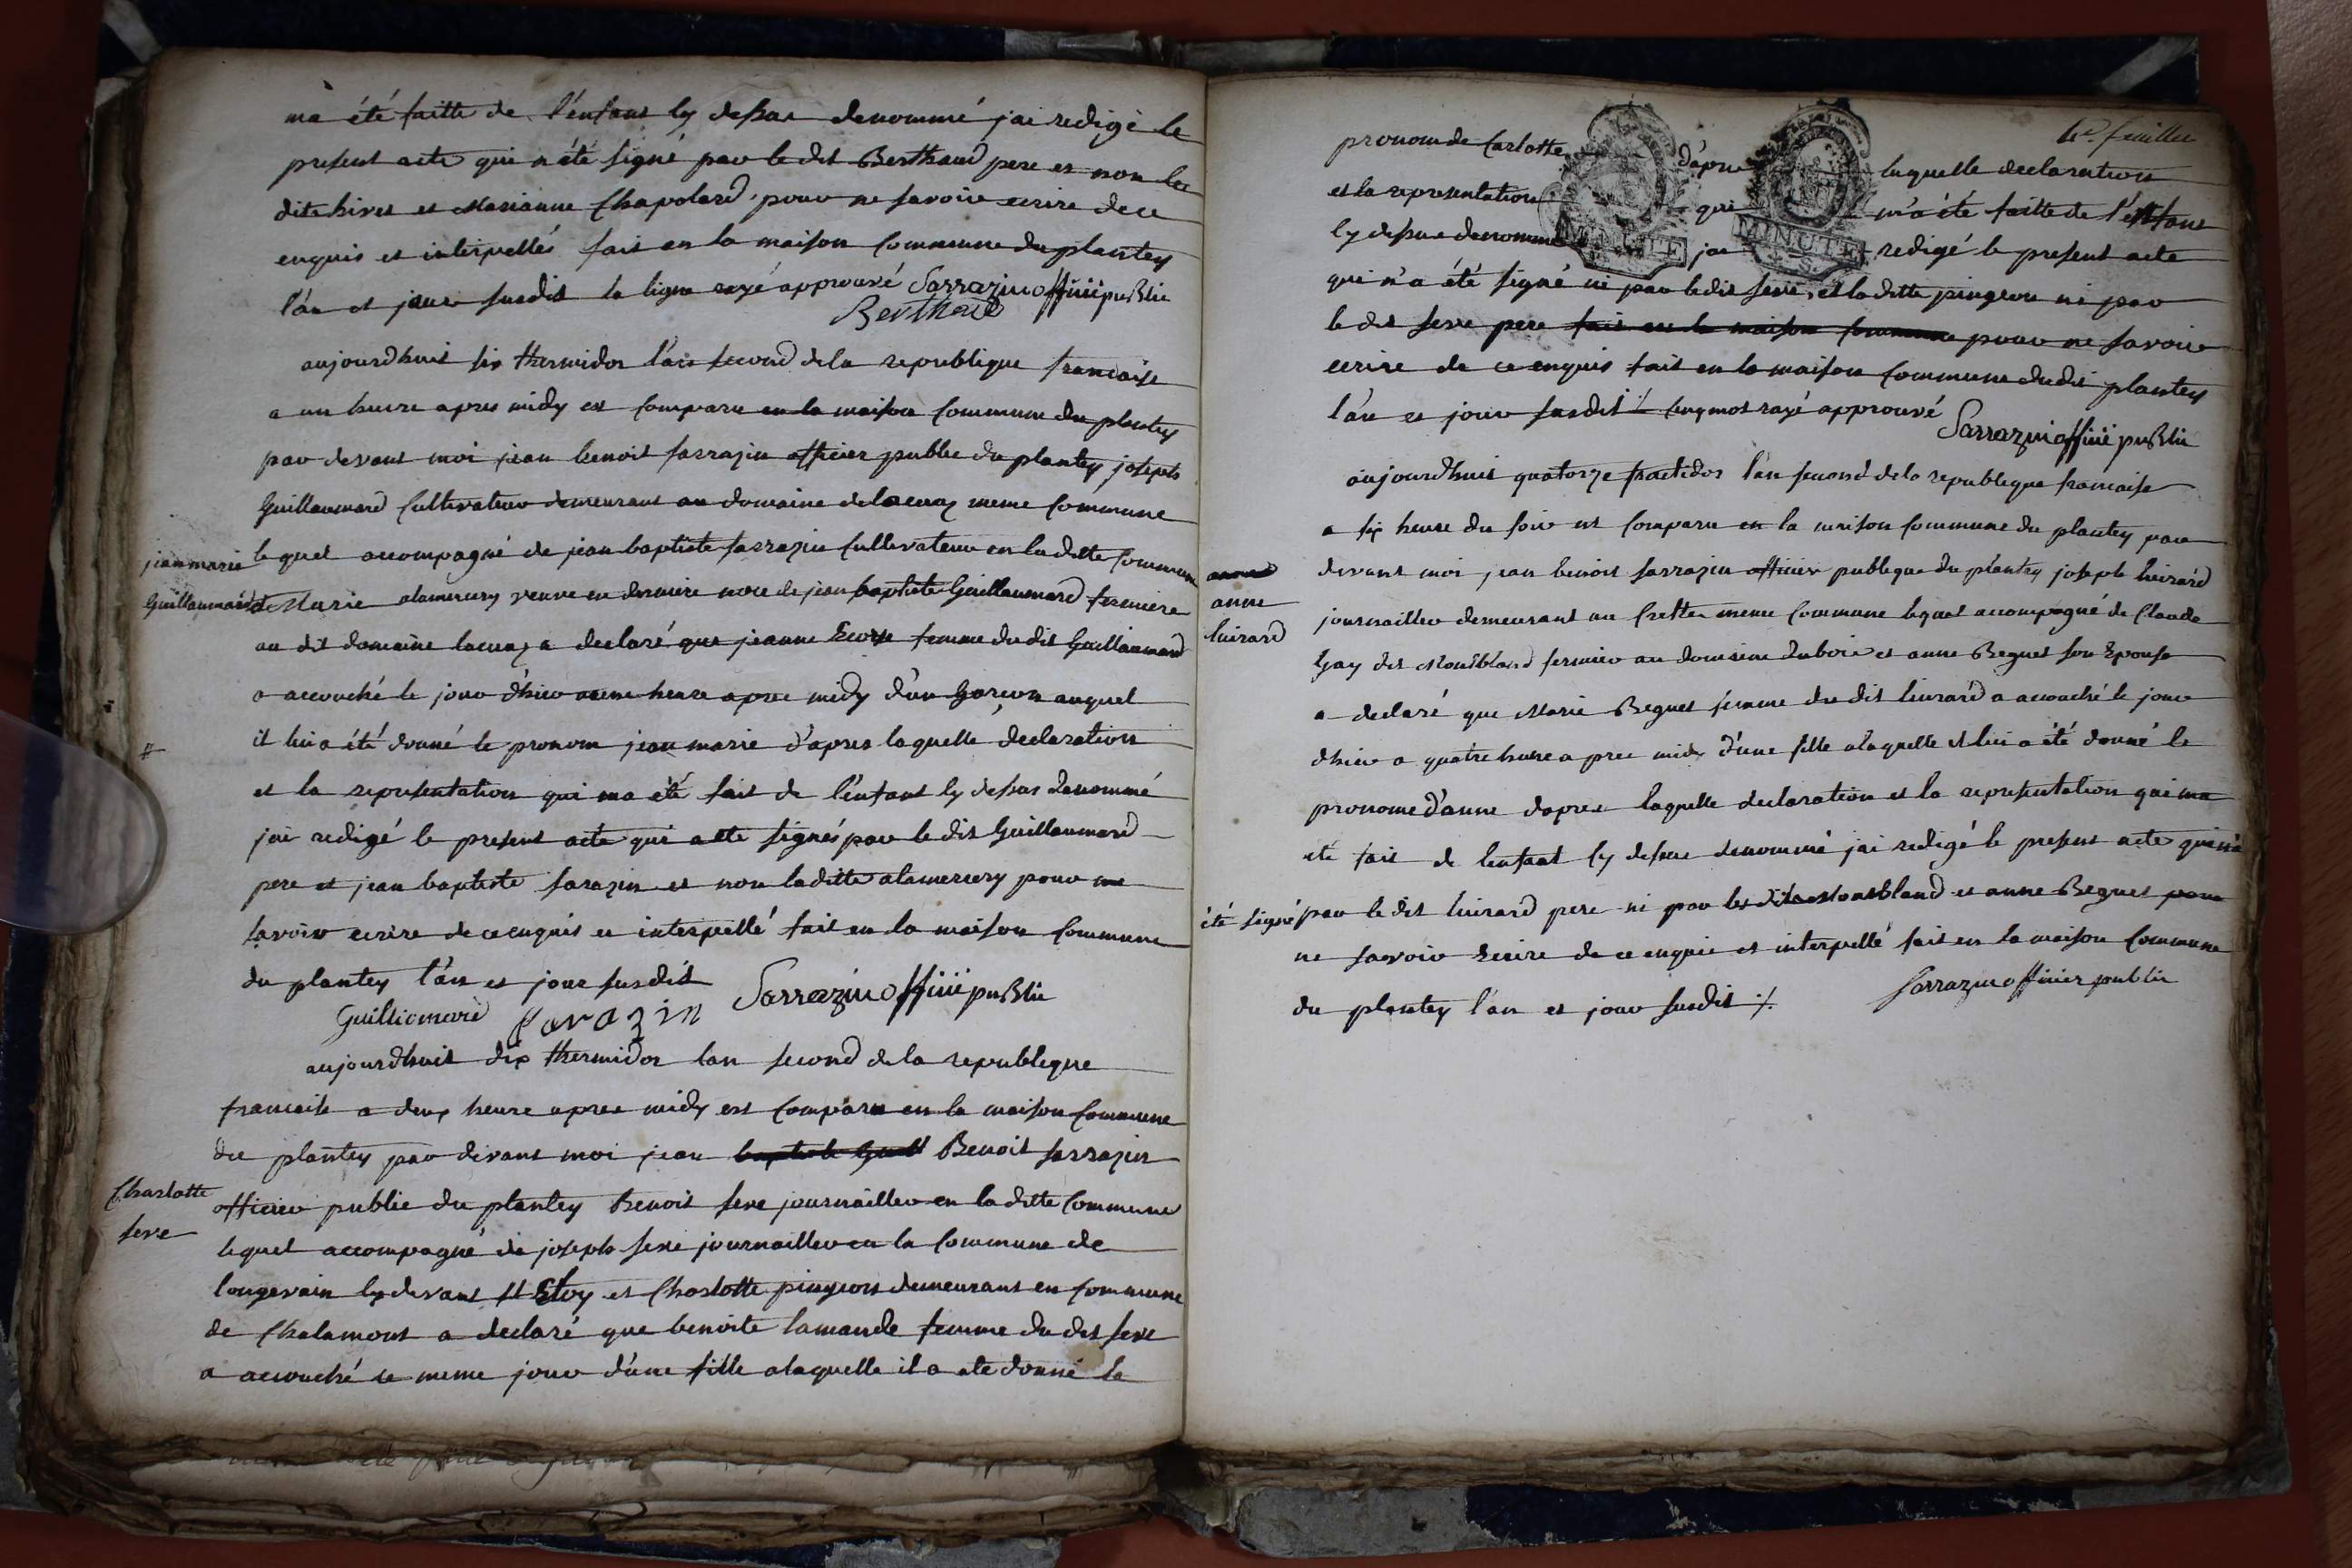 ma été faitte de l'enfant cy dessus denommé jai redigé le
present acte qui a été signé par le dit Berthaud pere et non les
dits hives et Marianne Chapolard pour ne savoir ecrire de ce
enquis et interpellés fait en la maison commune du plantey
l'an et jour susdit la ligne rayé approuvé Sarrazin officié publie
Berthaud
aujourdhuit six thermidor l'an second de la republique francaise
a un heure apres midy est comparu en la maison commune du plantey
par devant moi jean benoit sarrazin officier public du plantey joseph
Guillaumard cultivateur demeurant au domaine de lacuaz meme commune
jean marie
Guillaumard
lequel accompagné de jean baptiste sarrazin cultivateur en la ditte commune
et Marie alamercery veuve en derniere noce de jean baptiste Guillaumard fermiere
au dit domaine lacuaz a declaré que jeanne femme du dit Guillaumard
a accouché le jour d'hier a une heure apres midy d'un Garcon auquel
il lui a été donné le pronom jean marie d'apres laquelle declaration
#
et la representation qui ma été fait de l'enfant cy dessus denommé
jai redigé le present acte qui a ete signés par le dit Guillaumard
pere et jean baptiste sarazin et non la ditte alamercery pour ne
savoir ecrire de ce enquis et interpellé fait en la maison commune
du plantey l'an et jour susdit Sarrazin officié publie
Guilliomard sarazin
aujourdhuit dix thermidor lan second de la republique
francaise a deux heure apres midy est comparu en la maison commune
du plantey par devant moi jean baptiste Benoit sarrazin
Charlotte
seve
officier public du plantey Benoit seve journaillier en la ditte commune
lequel accompagné de joseph seve journaillier en la commune de
longevain cy devant st Eloy et Charlotte pingeon demeurant en commune
de Chalamont a declaré que benoite lamande femme du dit seve
a accouché ce meme jour d'une fille a laquelle il a ete donné le
feuillee
pronom de Carlotte d'apres laquelle declaration
et la representation qui m'a été faitte de l'enfant
cy dessus denommé jai redigé le present acte
MINUTE MINUTE
qui n'a été signé ni par le dit seve, et la ditte pingeon ni par
le dit seve pere fait en la maison commune pour ne savoir
ecrire de ce enquis fait en la maison commune du dit plantey
l'an et jour susdit ./. cinq mot rayé approuvé
Sarrazin officié publie
aujourdhuit quatorze fructidor l'an second de la republique francaise
a six heure du soir est comparu en la maison commune du plantey par
devant moi jean benoit sarrazin officier publique du plantey joseph luirard
anne
luirard
journaillier demeurant au Crettes meme commune lequel accompagné de Claude
Gay dit Montbland fermier au domaine Dubois et anne Beguet son Epouse
a declaré que Marie Beguet femme du dit luirard a accouché le jour
dhier a quatre heure apres midy d'une fille a laquelle il lui a été donné le
pronome d'anne dapres laquelle declaration et la representation qui ma
ete fait de lenfant cy dessus denommé jai redigé le present acte qui n'a
été signé par le dit luirard pere ni par les dits Montbland et anne Beguet pour
ne savoir Ecrire de ce enquis et interpellé fait en la maison commune
du plantey l'an et jour susdit ./. Sarrazin officier public